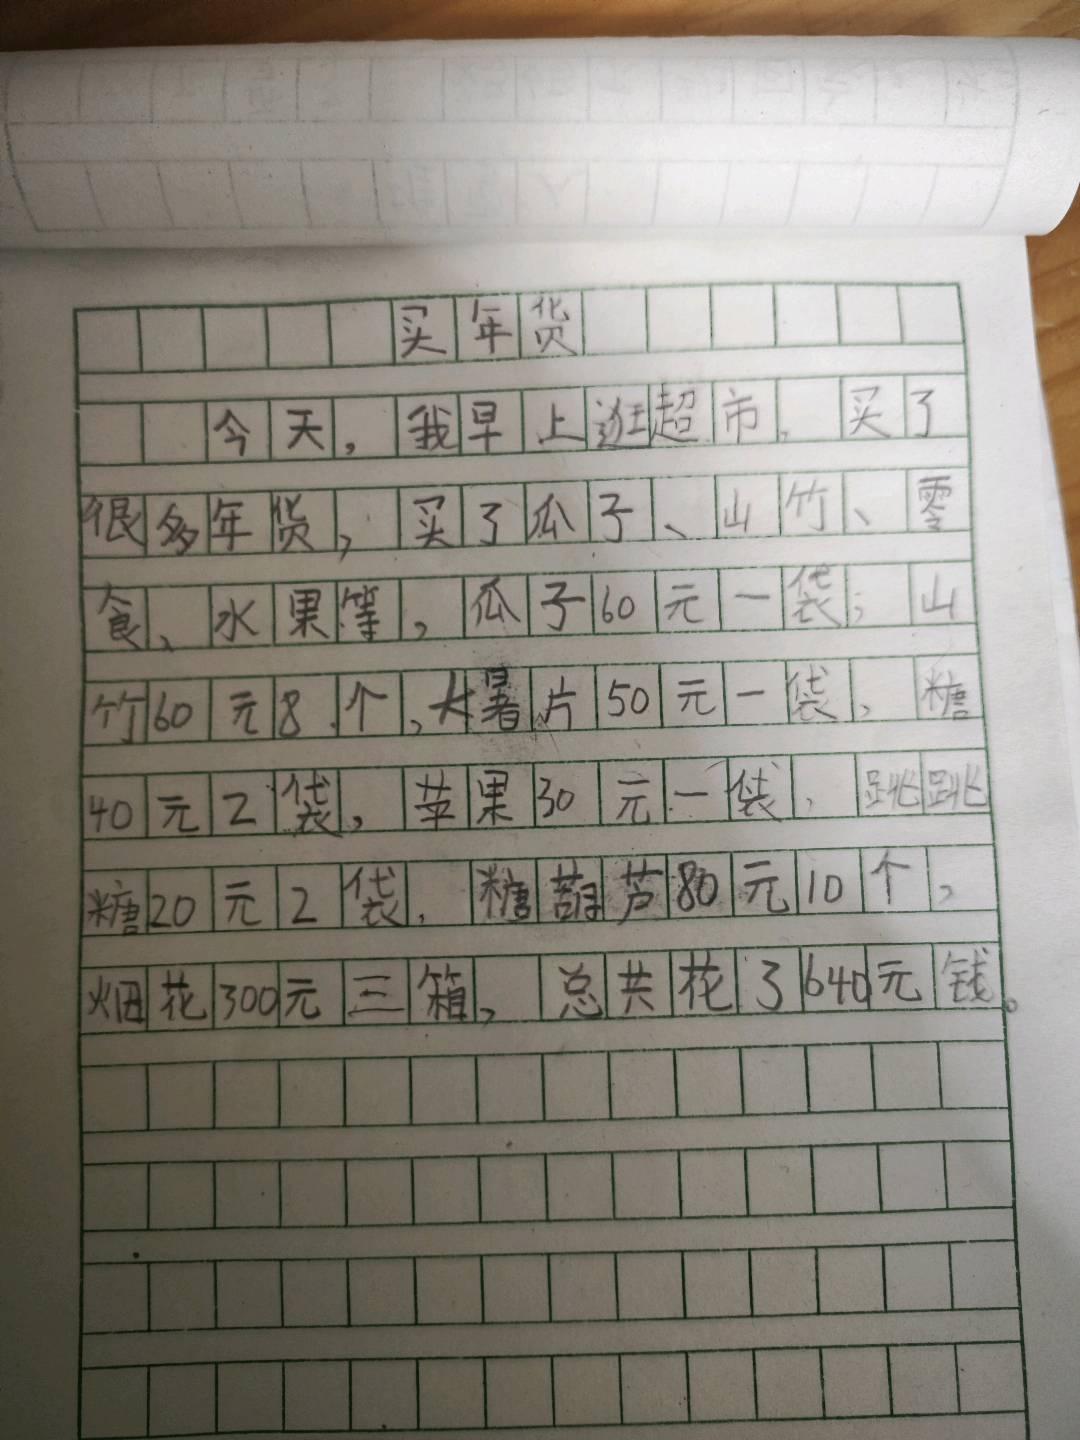 买年货
今天,我早上逛超市,买了
很多年货,买了瓜子、山竹、零
食、水果等,瓜子60元一袋;山
竹60元8个,大暑片50元一袋,糖
40元2袋,苹果30元一袋,跳跳
糖20元2袋,糖葫芦80元10个,
烟花300元三箱,总共花了640元钱。